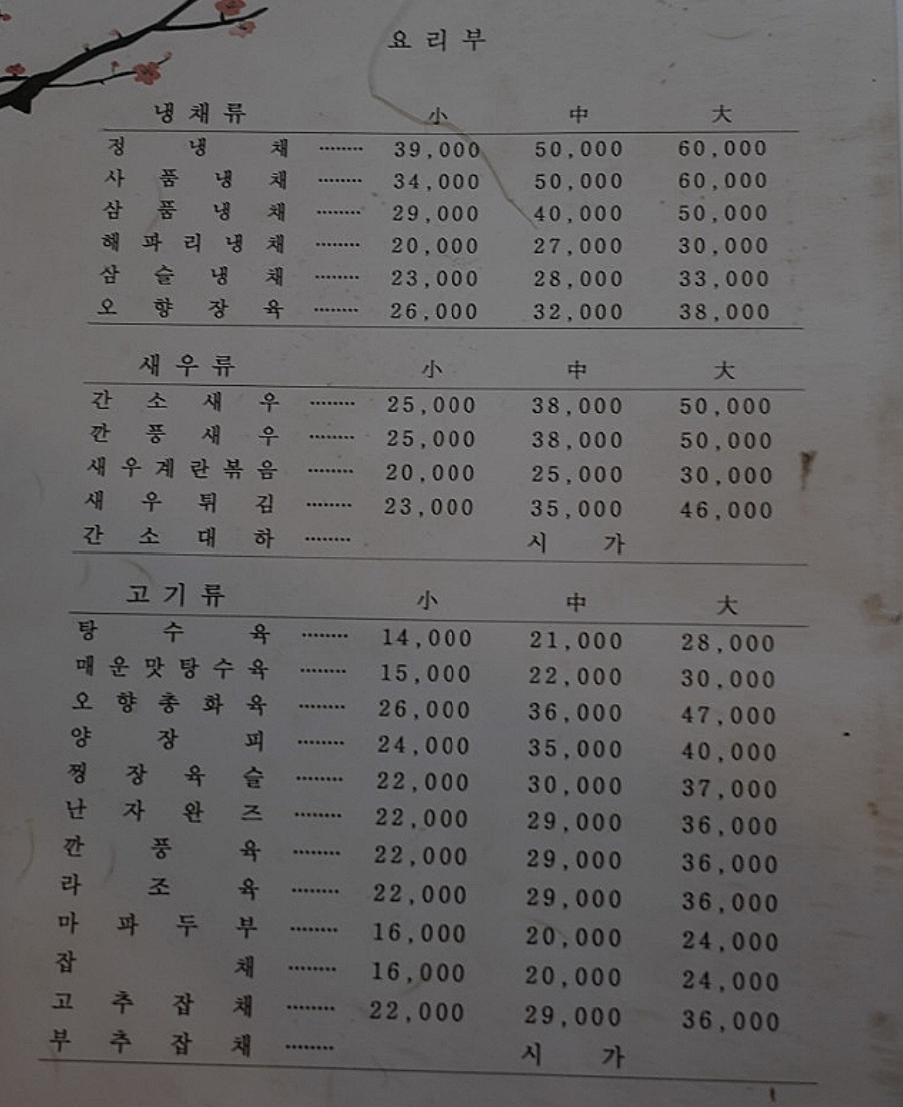 요리부
냉채류 小 中 大
정냉채 ········ 39,000 50,000 60,000
사품냉채 ········ 34,000 50,000 60,000
삼품냉채 ········ 29,000 40,000 50,000
해파리냉채 ········ 20,000 27,000 30,000
삼슬냉채 ········ 23,000 28,000 33,000
오향장육 ········ 26,000 32,000 38,000
새우류 小 中 大
간소새우 ········ 25,000 38,000 50,000
깐풍새우 ········ 25,000 38,000 50,000
새우계란볶음 ········ 20,000 25,000 30,000
새우튀김 ········ 23,000 35,000 46,000
간소대하 ········ 시가
고기류 小 中 大
탕수육 ········ 14,000 21,000 28,000
매운맛탕수육 ········ 15,000 22,000 30,000
오향총화육 ········ 26,000 36,000 47,000
양장피 ········ 24,000 35,000 40,000
찡장육슬 ········ 22,000 30,000 37,000
난자완즈 ········ 22,000 29,000 36,000
깐풍육 ········ 22,000 29,000 36,000
라조육 ········ 22,000 29,000 36,000
마파두부 ········ 16,000 20,000 24,000
잡채 ········ 16,000 20,000 24,000
고추잡채 ········ 22,000 29,000 36,000
부추잡채 ········ 시가